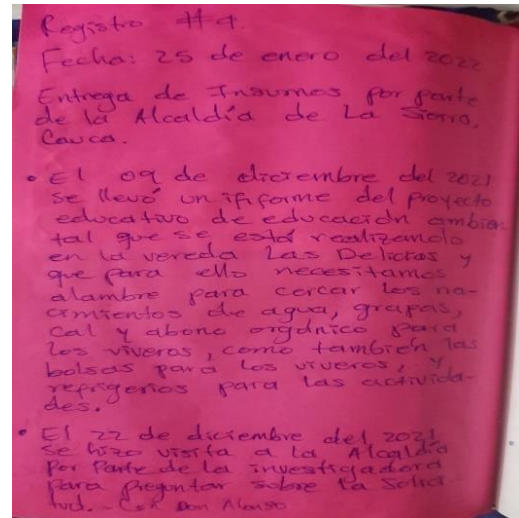 Registro #4.
Fecha: 25 de enero del 2022
Entrega de Insumos por parte
de la Alcaldía de La Sierra,
Cauca.
• El 09 de diciembre del 2021
se llevó un informe del proyecto
educativo de educación ambien
tal que se está realizando
en la vereda Las Delicias y
que para ello necesitamos
alambre para cercar los na-
cimientos de agua, grapas,
cal y abono orgánico para
los viveros, como también las
bolsas para los viveros, y
refrigerios para las activida-
des.
• El 22 de diciembre del 2021
se hizo visita a la Alcaldía
por parte de la investigadora
para preguntar sobre la solici-
tud. - Con Don Alonso